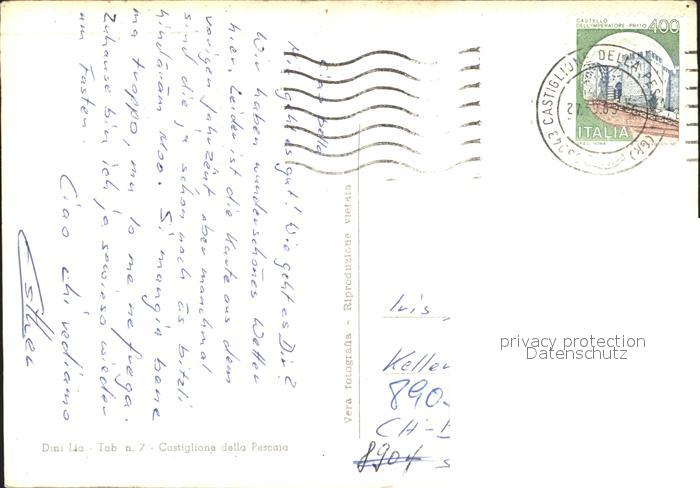 Ciao bella
Mir geht es gut! Wie geht es Dir?
Wir haben wunderschönes Wetter
hier. Leider ist die Karte aus dem
vorigen Jahrzehnt aber manchmal
sind die ja schon noch äs bitzli
hindäram Moo. Si mangia bene
ma troppo, ma io me ne frega.
Zuhause bin ich ja sowieso wieder
am Fasten.
Ciao chi vediamo
Esther
Dini Lia - Tab. n. 7 - Castiglione della Pescaia
Vera fotografia - Riproduzione vietata
CASTELLO
DELL'IMPERATORE - PRATO
400
ITALIA
CASTIGLIONE DELLA PESCAIA (GR)
Iris
Keller
890
CH-
8904
privacy protection
Datenschutz